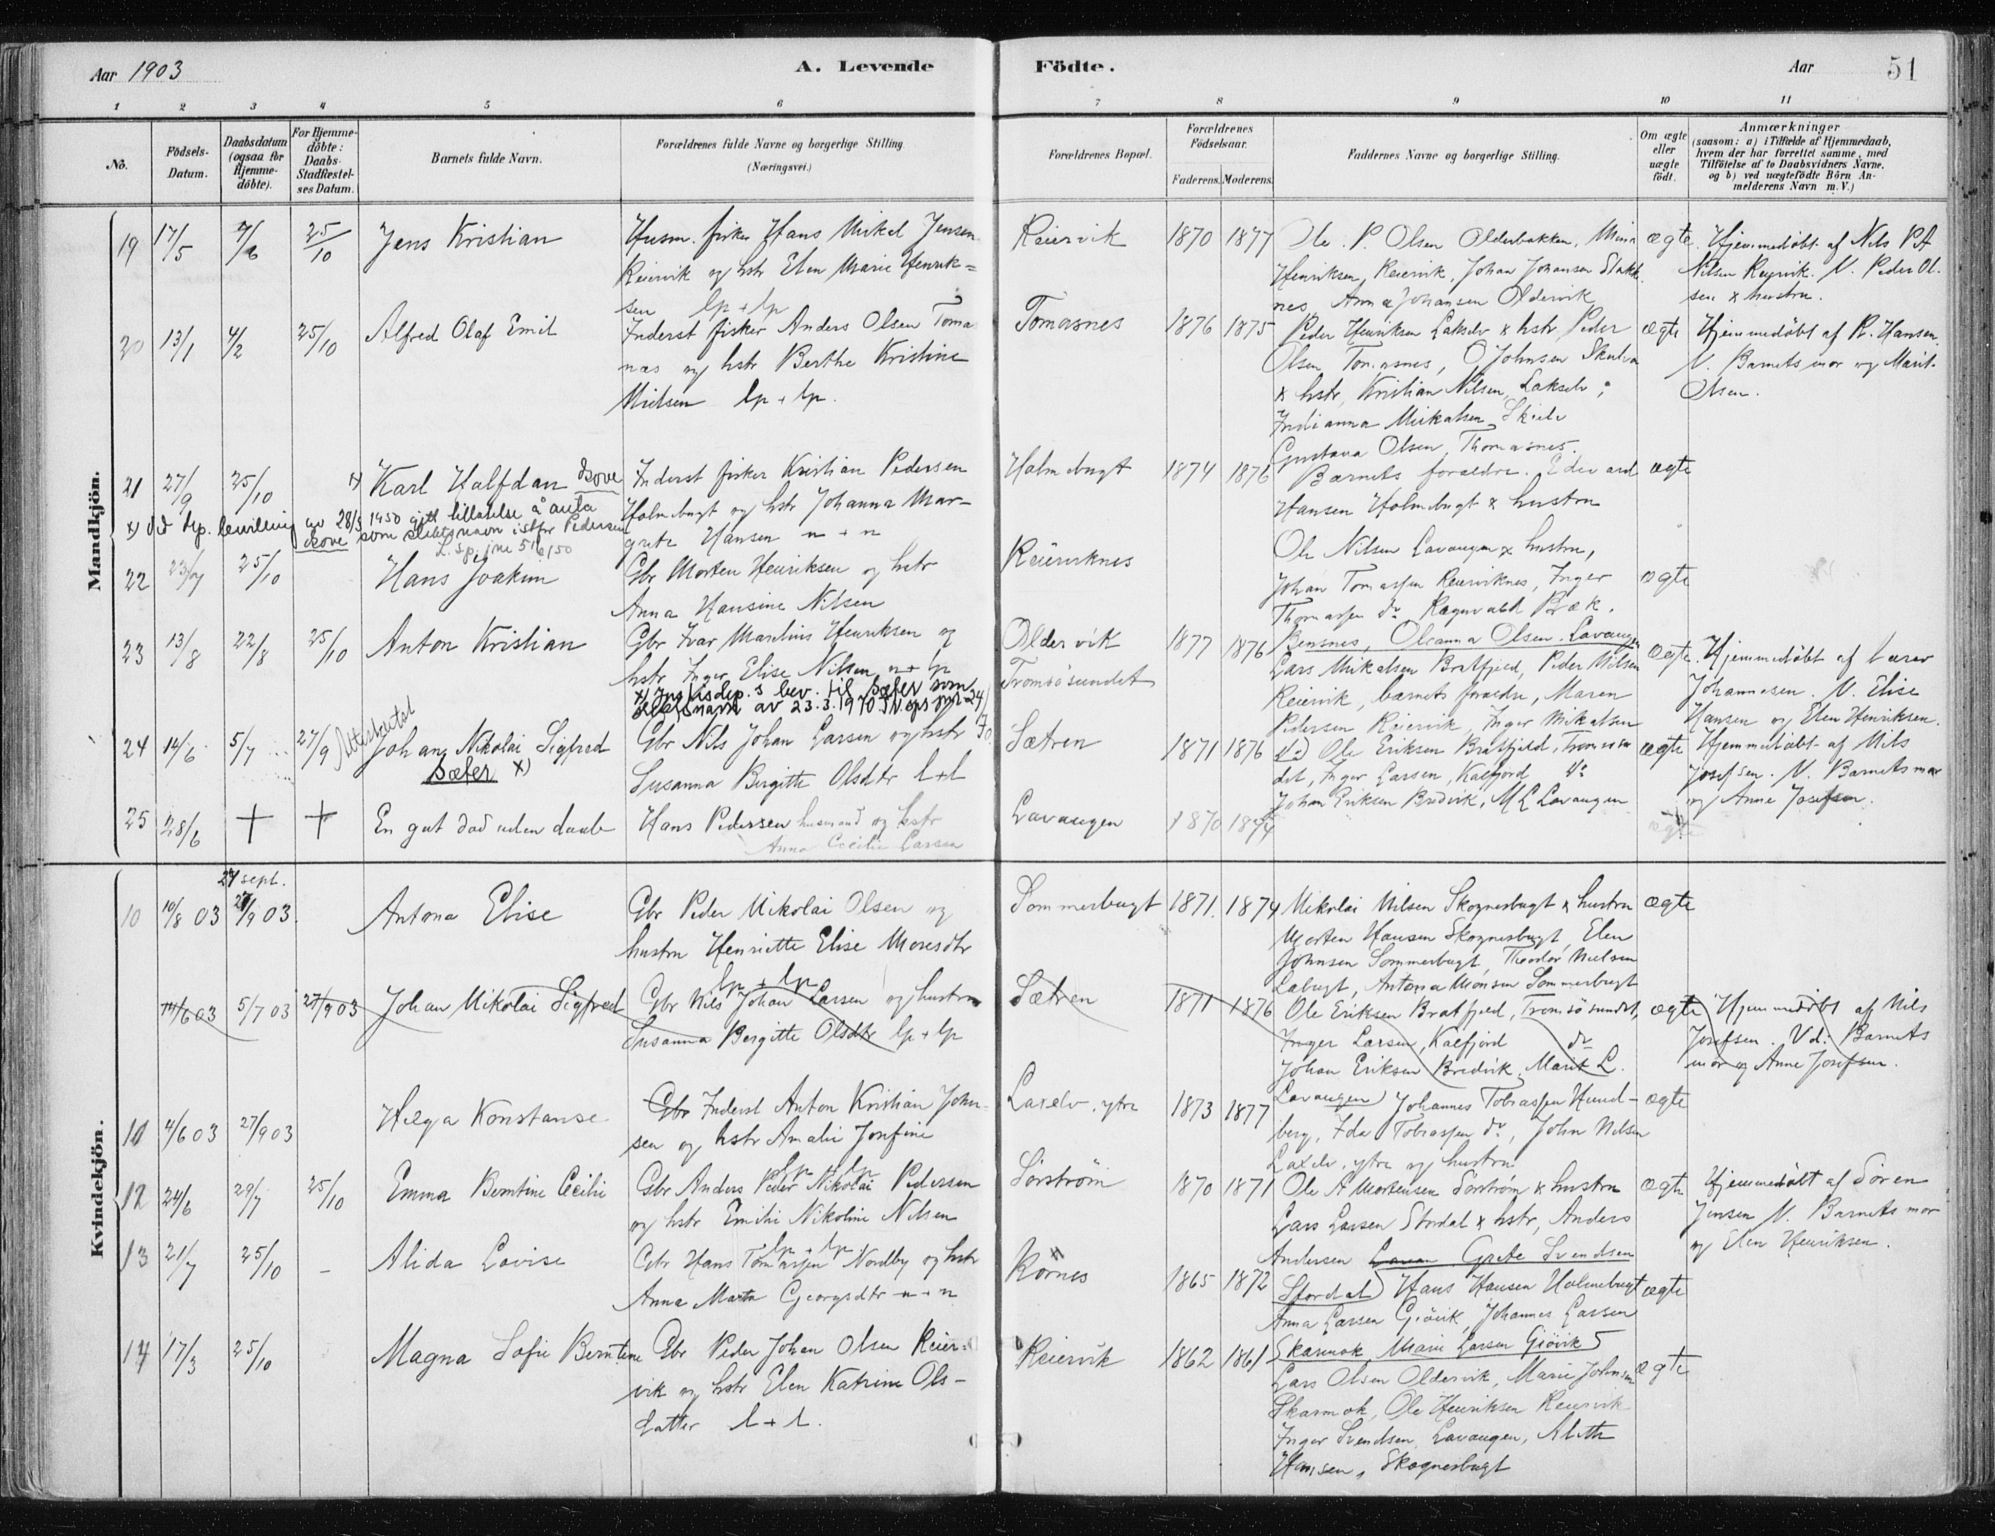 Aar 1903
A. Levende
Födte.
Aar
51
1 2 3 4 5 6 7 8 9 10 11
No.
Födsels-
Datum.
Daabsdatum
(ogsaa for
Hjemme-
döbte).
For Hjemme-
döbte:
Daabs-
Stadfæstel-
ses Datum.
Barnets fulde Navn.
Forældrenes fulde Navne og borgerlige Stilling
(Næringsvei.)
Forældrenes Bopæl.
Forældrenes
Födselsaar.
Faderens. Moderens.
Faddernes Navne og borgerlige Stilling.
Om ægte
eller
uægte
födt.
Anmærkninger
(saasom: a) i Tilfælde af Hjemmedaab,
hvem der har forrettet samme, med
Tilföielse af to Daabsvidners Navne,
og b) ved uægtefödte Börn An-
melderens Navn m.V.)
Mandkjön.
19 17/5 7/6 25/10 Jens Kristian
Husm. fisker Hans Mikal Jensen
Reiervik og hstr Elen Marie Henrik=
sen lp + lp
Reiervik 1870 1877
Ole P. Olsen Olderbakken, Mina
Henriksen, Reiervik, Johan Johansen Slakk
nes, Anna Johansen Oldervik
ægte
Hjemmedöbt af Nils P A
Nilsen Reiervik. V. Peder Ol.
sen & hustru.
20 13/1 4/2 25/10 Alfred Olaf Emil
Inderst fisker Anders Olsen Toma
næs og hstr Berthe Kristine
Nielsen lp + lp.
Tomasnes 1876 1875
Peder Henriksen Lakselv & hstr Peder
Olsen Tomasnes, O Johnsen
& hstr, Kristian Nilsen, Lakselv;
Mikalsen
Gustava Olsen, Thomasnes.
ægte
Hjemmedöbt af R. Hansen.
V. Barnets mor og Marit
Olsen.
21 27/9 25/10 x) Karl Halfdan Skove
x) Ved dep. bevilling av 28/3 1950 gitt tillatelse å anta
Skove som slektsnavn istfr Pedersen
L.sp. jnr 516/50
Inderst fisker Kristian Pedersen
Holmebugt og hstr Johanna Mar-
grete Hansen n + n
Holmebugt 1874 1876
Barnets forældre. Edevard
Hansen Holmebugt & hustru
ægte
22 23/7 25/10 Hans Joakim
Gbr Morten Henriksen og hstr
Anna Hansine Nilsen
Reierviknes
Ole Nilsen Lavangen & hustru,
Johan Tomassen Reierviknes, Inger
Thomassen do Ragnvald Bæk.
Bensnes, Oleanna Olsen. Lavangen
ægte
23 13/8 22/8 25/10 Anton Kristian
Gbr Ivar Marelius Henriksen og
hstr Inger Elise Nilsen n + lp
x) Justisdep.s bev. til Sæter som
slektsnavn av 23.3.1970
Oldervik
Tromsösundet
1877 1876
Lars Mikalsen Bratfjeld, Peder Nilsen
Reiervik, barnets forældre, Maren
Pedersen Reiervik, Inger Mikalsen
ægte
Hjemmedöbt af lærer
Johannesen. V. Elise
Hansen og Elen Henriksen.
24 14/6 5/7 27/9 Johan Nikolai Sigfred
Sæter x)
Gbr Nils Johan Larsen og hstr
Susanna Birgitte Olsdtr l + l
Sætren 1871 1876
Ole Eriksen Bratfjeld, Tromsösun
det, Inger Larsen, Kalfjord do
Johan Eriksen Bredvik, M L Lavangen
ægte
Hjemmedöbt af Nils
Josefsen. V. Barnets mor
og Anne Josefsen.
25 28/6 + + En gut död uden daab
Hans Pedersen husmand og hstr
Anna Cecilie Larsen
Lavangen 1870 1874 ægte
Kvindekjön.
27 sept.
10 10/8 03 27/9 03. Antona Elise
Gbr Peder Nikolai Olsen og
hustru Henriette Elise Monsdtr
lp + lp
Sommerbugt 1871. 1874
Nikolai Nilsen Skognesbugt & hustru
Morten Hansen Skognesbugt, Elen
Johnsen Sommerbugt, Theodor Nielsen
Labugt, Antona Monsen Sommerbugt
ægte
14/6 03 5/7 03 27/9 03 Johan Nikolai Sigfred
Gbr Nils Johan Larsen og hustru
Susanna Bergitte Olsdtr lp + lp
Sætren 1871 1876
Ole Eriksen Bratfjeld, Tromsösundet,
Inger Larsen, Kalfjord do
Johan Eriksen Bredvik, Marit L.
Lavangen
ægte
Hjemmedöbt af Nils
Josefsen. Vd: Barnets
mor og Anne Josefsen.
10 4/6 03 27/9 03 Helga Konstanse
Gbr Inderst Anton Kristian John-
sen og hstr Amalie Josefine
lp lp
Laxelv. ytre 1873 1877
Johannes Tobiassen Hund-
berg, Ida Tobiassen do, John Nilsen
Laxelv. ytre og hustru
ægte
12 24/6 29/7 25/10 Emma Berntine Cecilie
Gbr Anders Peder Nikolai Pedersen
og hstr Emilie Nikoline Nilsen
lp + lp
Sörström 1870 1871
Ole A Mortensen Sörström & hustru
Lars Larsen Stordal & hstr, Anders
Andersen Grete Svendsen
Stordal
ægte
Hjemmedöbt af Sören
Jensen V. Barnets mor
og Elen Henriksen.
13 21/7 25/10 – Alida Lovise
Gbr Hans Tomassen Nordby og hstr
Anna Marta Georgsdtr n + n
Körnes 1865 1872
Hans Hansen Holmebugt
Anna Larsen Giövik, Johannes Larsen
Skarmok, Marie Larsen Giövik
ægte
14 17/3 25/10 Magna Sofie Berntine
Gbr Peder Johan Olsen Reier=
vik og hstr Elen Katrine Ols-
datter l + l.
Reiervik 1862 1861
Lars Olsen Oldervik, Marie Johnsen
Skarmok, Ole Henriksen Reiervik
Inger Svendsen Lavangen, Aleth
Hansen, Skognesbugt
ægte